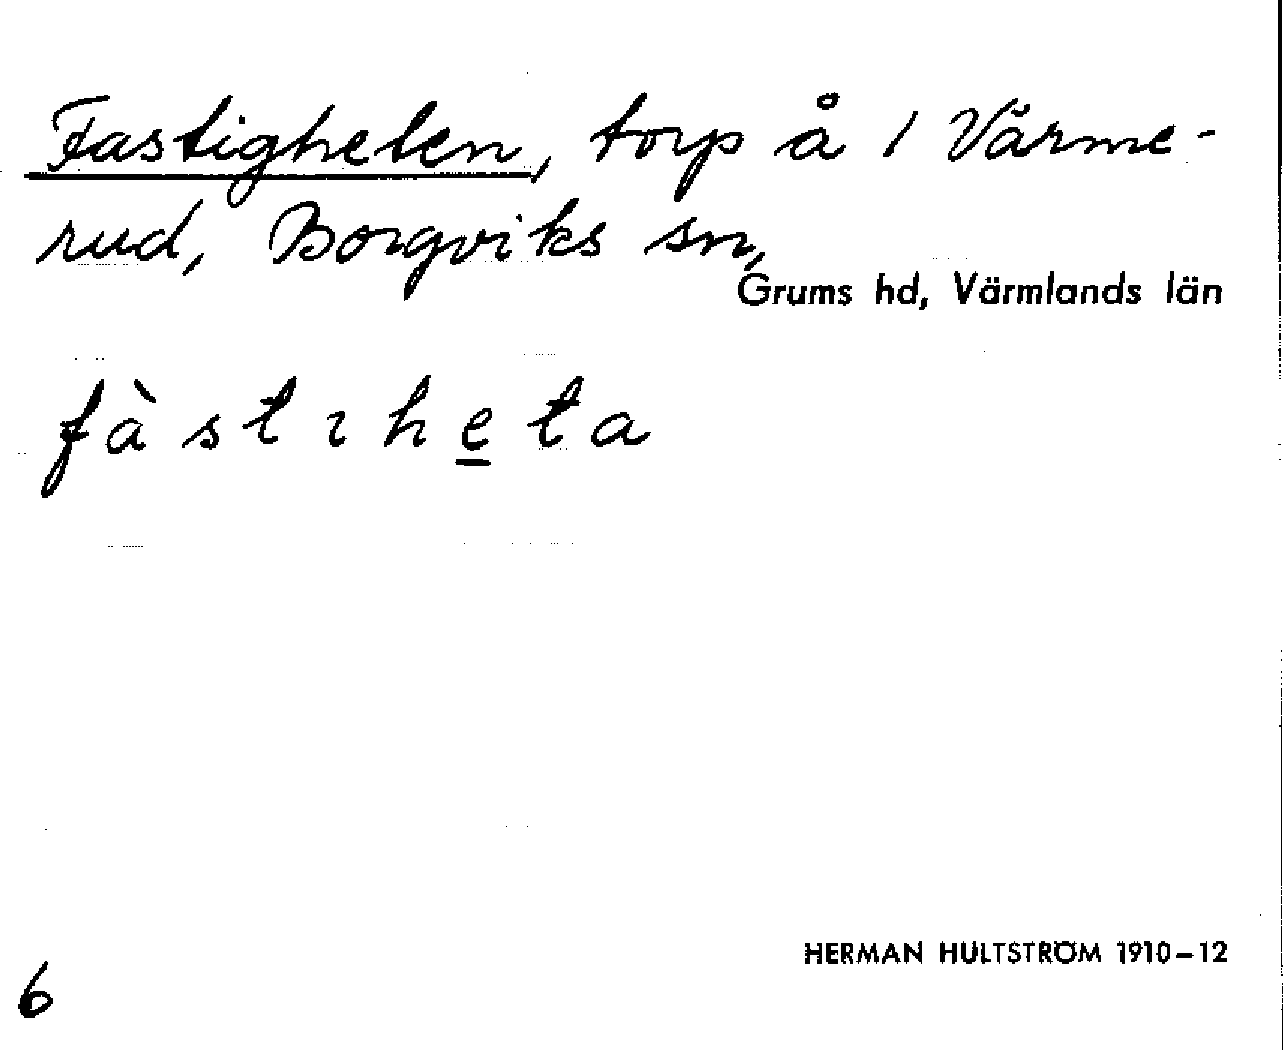 Fastigheten, torp å 1 Värme-
rud, Borgviks sn,
Grums hd, Värmlands län
fàstıhe̲ta
HERMAN HULTSTRÖM 1910–12
6